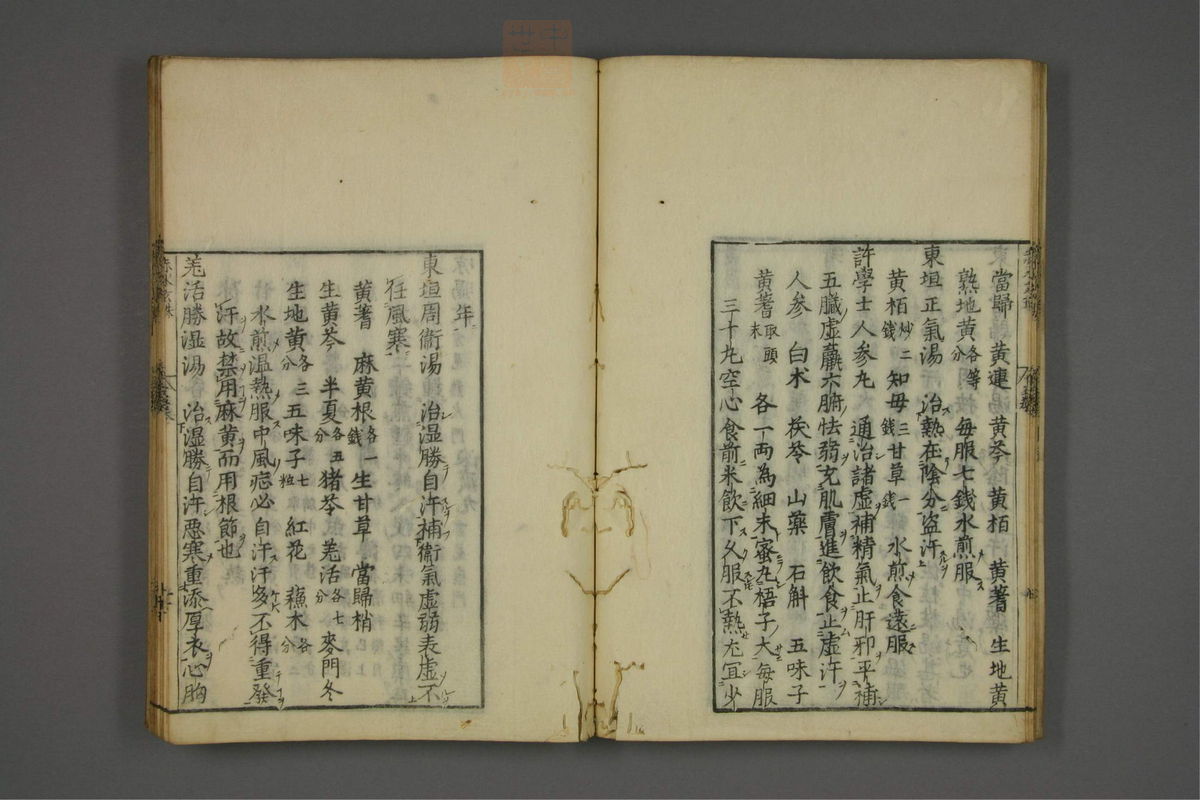 當歸 黄連 黄芩 黄栢 黄蓍 生地黄
熟地黄各等分 每服七錢水煎服
東垣正氣湯 治熱在陰分盗汗
黄栢炒二錢 知母三錢 甘草一錢 水煎食遠服
許學士人参丸 通治諸虛補精氣止肝邪平補
五臟虛羸六腑怯弱充肌膚進飲食止虛汗
人参 白术 茯苓 山藥 石斛 五味子
黄蓍取頭末 各一両為細末蜜丸梧子大每服
三十丸空心食前米飲下久服不熱尤冝少
年
東垣周衞湯 治湿勝自汗補衞氣虛弱表虛不
任風寒
黄蓍 麻黄根各一錢 生甘草 當歸梢
生黄芩 半夏各五分 猪苓 羌活各七分 麥門冬
生地黄各三分 五味子七粒 紅花 蘓木各一分
水煎温熱服中風症必自汗汗多不得重發
汗故禁用麻黄而用根節也
羌活勝湿湯 治湿勝自汗惡寒重添厚衣心胸